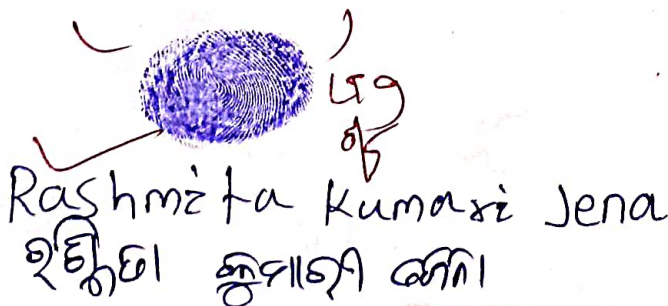 Rashmita Kumari Jena
ରଶ୍ମିତା କୁମାରୀ ଜେନା